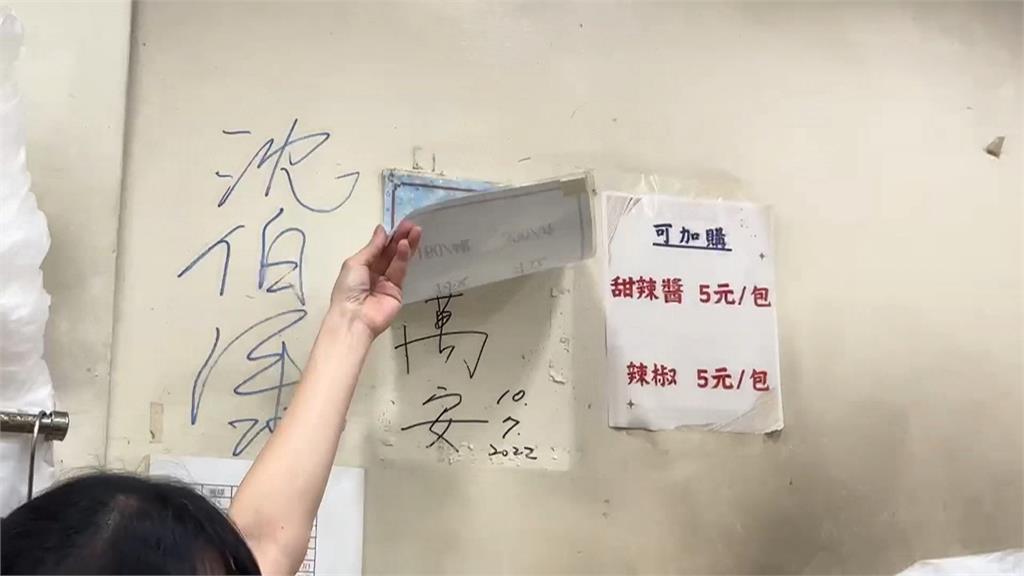 沈
伯
洋
萬
安
10.
7.
2022
可加購
甜辣醬 5元/包
辣椒 5元/包